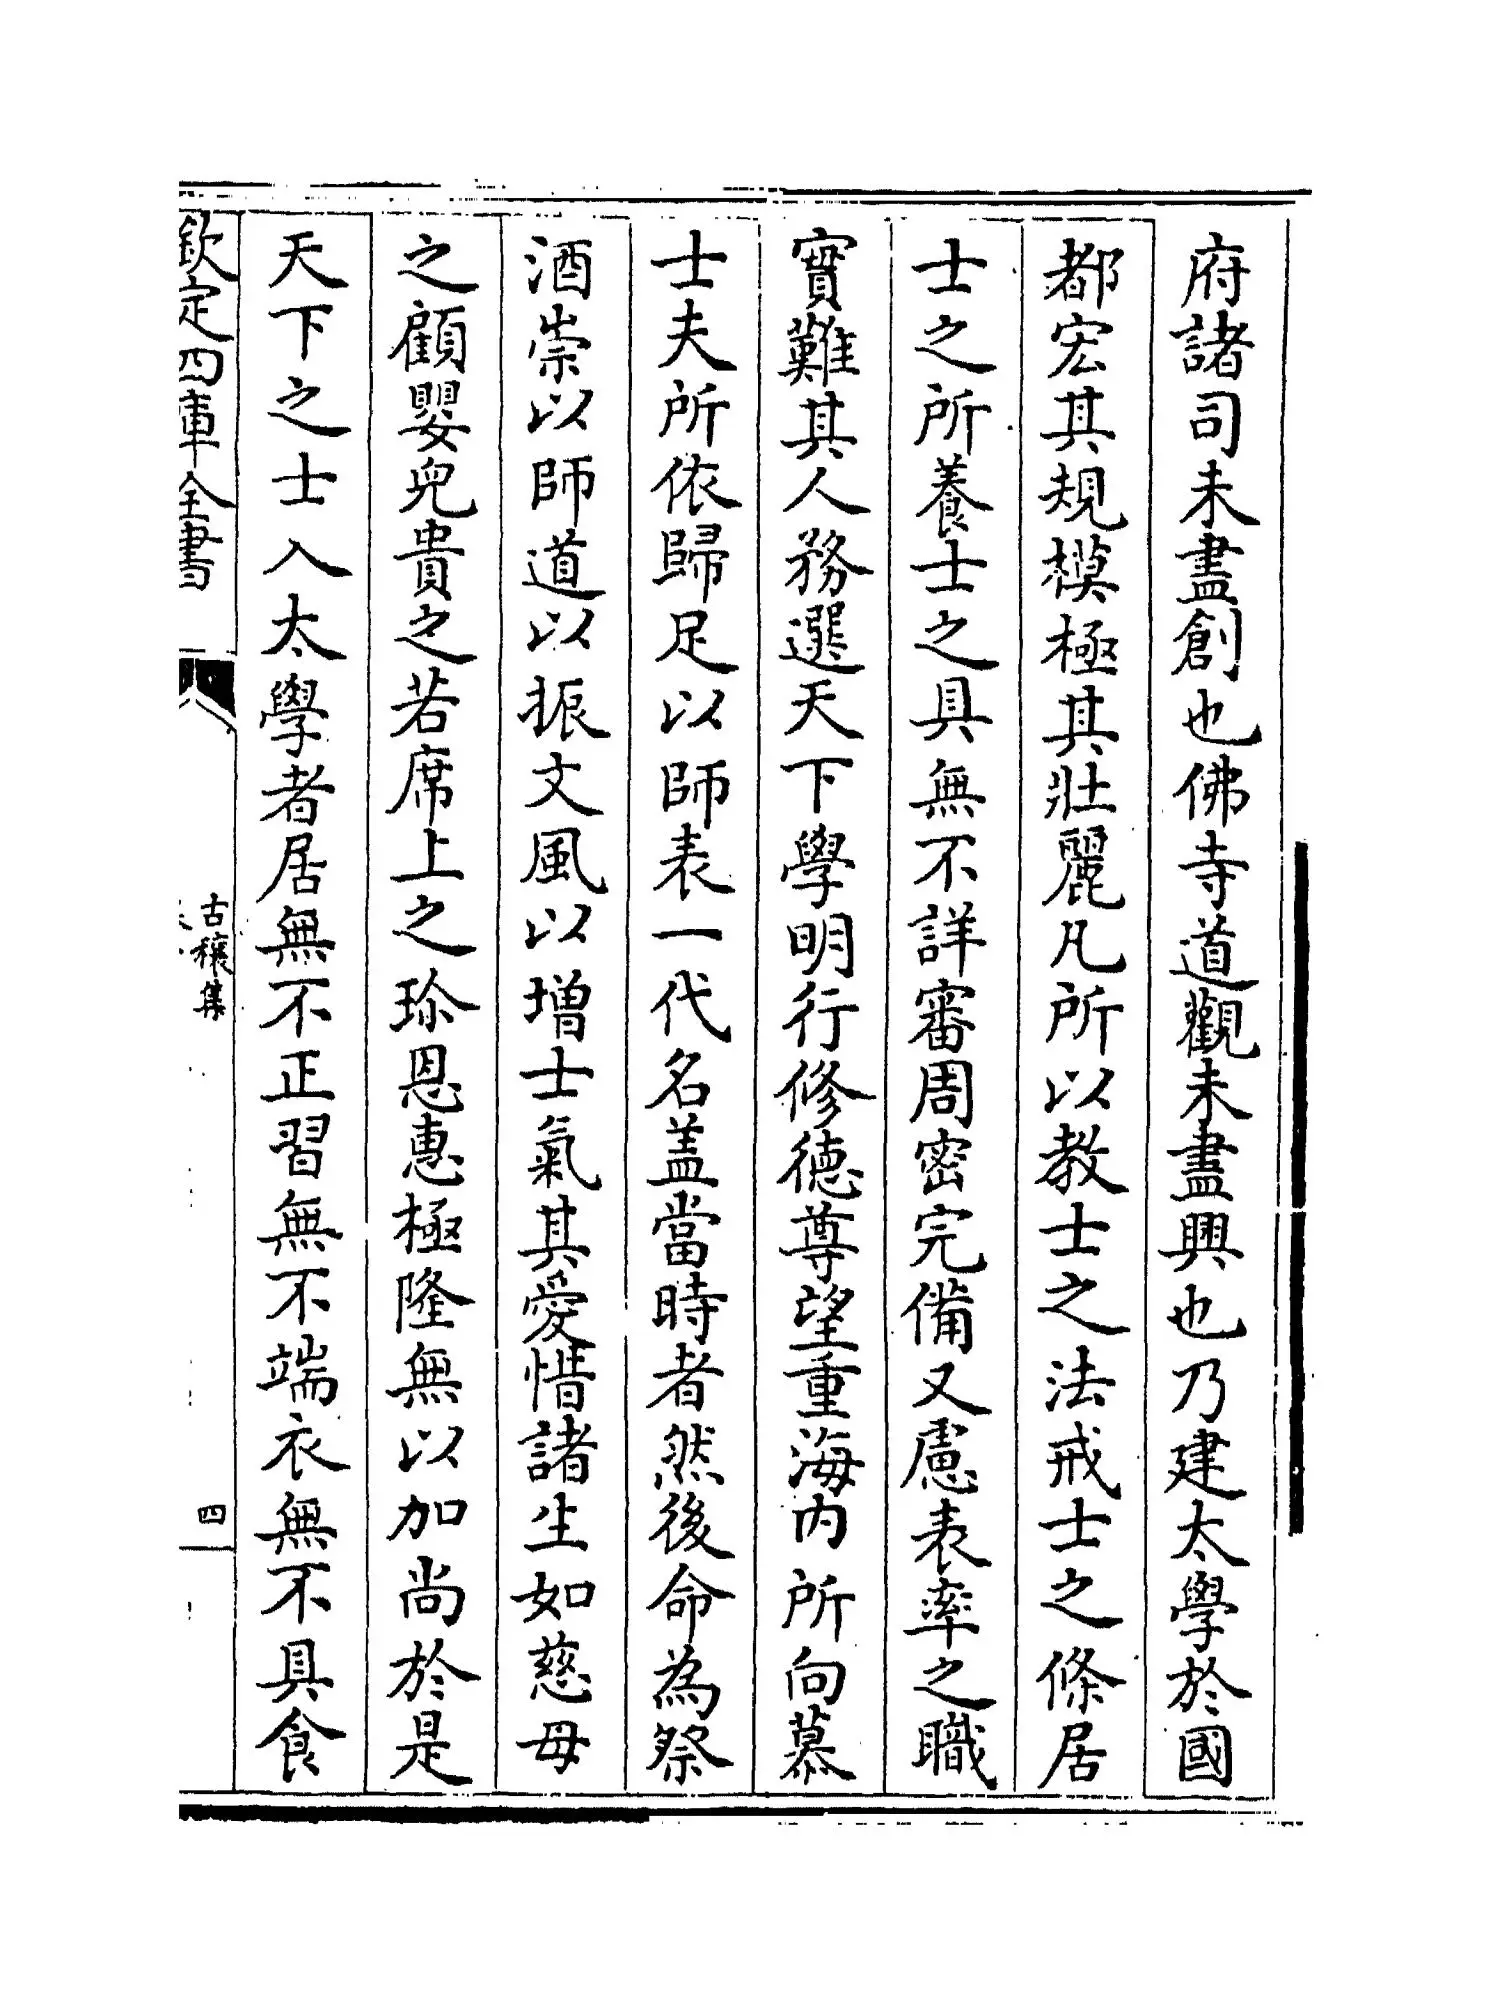 府諸司未盡創也佛寺道觀未盡興也乃建太學於國
都宏其規模極其壯麗凡所以教士之法戒士之條居
士之所養士之具無不詳審周密完備又慮表率之職
實難其人務選天下學明行修德尊望重海内所向慕
士夫所依歸足以師表一代名盖當時者然後命為祭
酒崇以師道以振文風以增士氣其愛惜諸生如慈母
之顧嬰兒貴之若席上之珍恩惠極隆無以加尚於是
天下之士入太學者居無不正習無不端衣無不具食
欽定四庫全書
古穰集
四